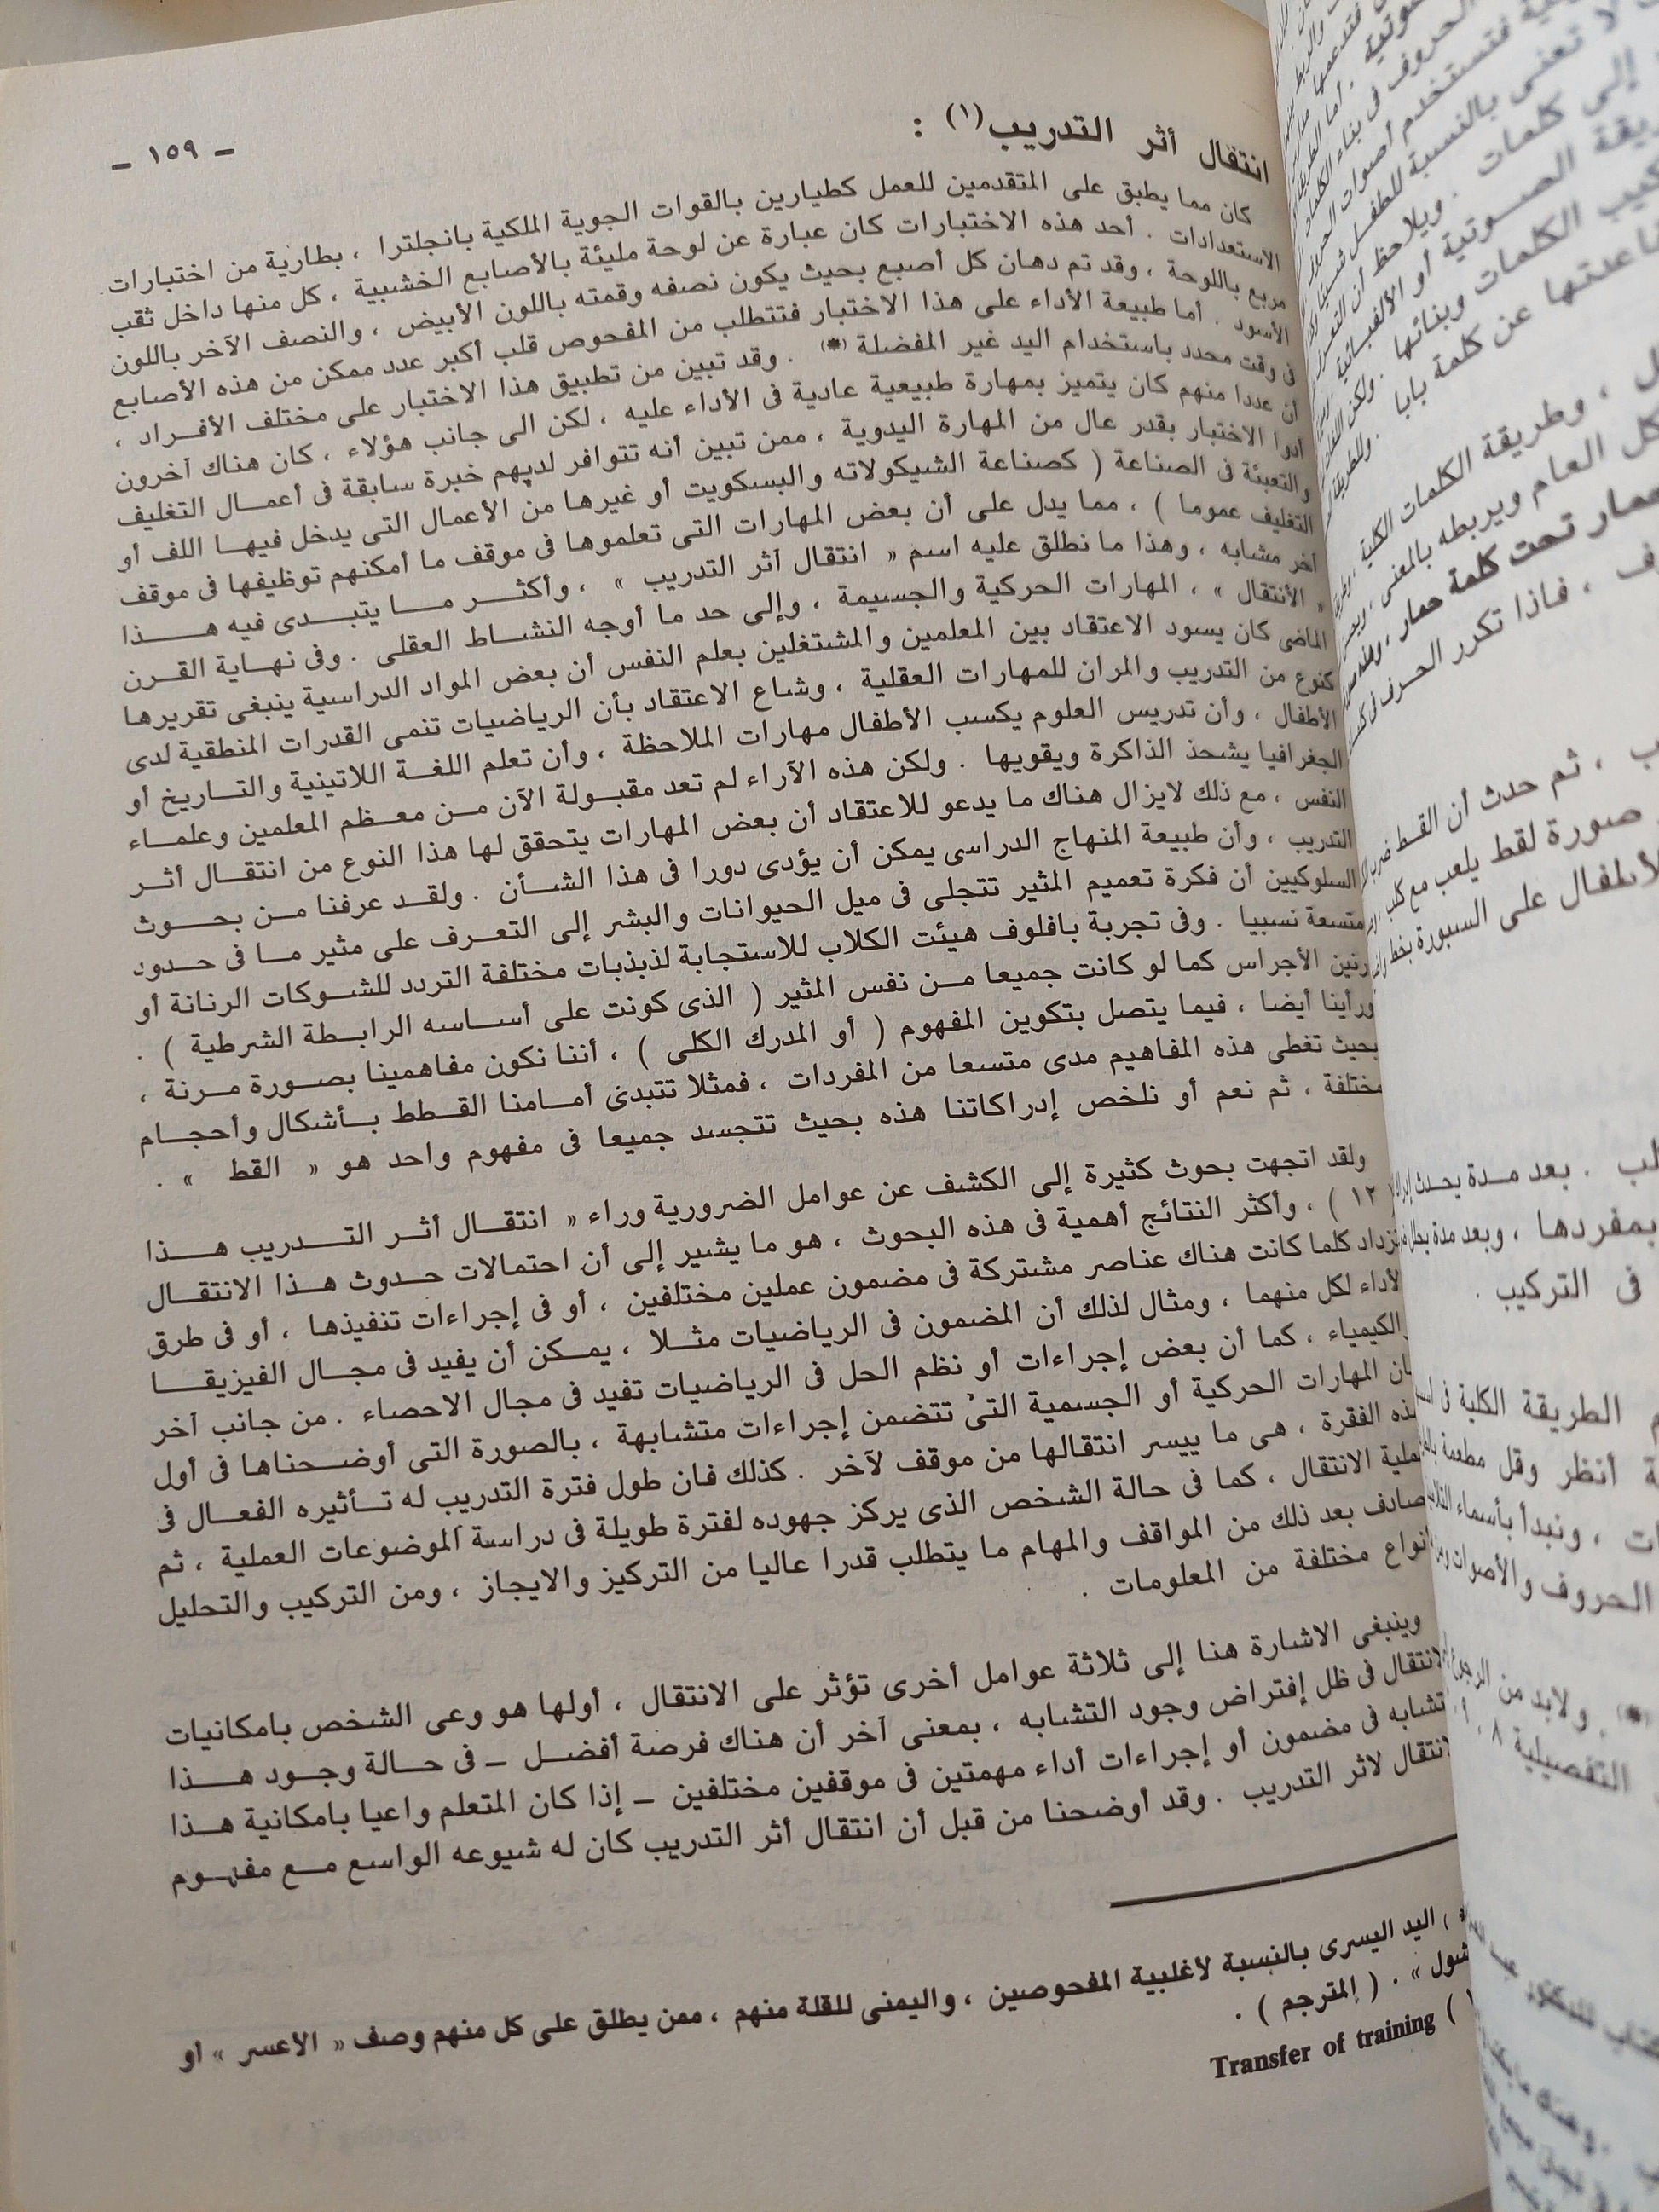 ـ ١٥٩ ـ
انتقال أثر التدريب(١) :
كان مما يطبق على المتقدمين للعمل كطيارين بالقوات الجوية الملكية بانجلترا ، بطارية من اختبارات
الاستعدادات . أحد هذه الاختبارات كان عبارة عن لوحة مليئة بالأصابع الخشبية ، كل منها داخل ثقب
مربع باللوحة ، وقد تم دهان كل أصبع بحيث يكون نصفه وقمته باللون الأبيض ، والنصف الآخر باللون
الأسود . أما طبيعة الأداء على هذا الاختبار فتتطلب من المفحوص قلب أكبر عدد ممكن من هذه الأصابع
فى وقت محدد باستخدام اليد غير المفضلة (*) . وقد تبين من تطبيق هذا الاختبار على مختلف الأفراد ،
أن عددا منهم كان يتميز بمهارة طبيعية عادية فى الأداء عليه ، لكن الى جانب هؤلاء ، كان هناك آخرون
أدوا الاختبار بقدر عال من المهارة اليدوية ، ممن تبين أنه تتوافر لديهم خبرة سابقة فى أعمال التغليف
والتعبئة فى الصناعة ( كصناعة الشيكولاته والبسكويت أو غيرها من الأعمال التى يدخل فيها اللف أو
التغليف عموما ) ، مما يدل على أن بعض المهارات التى تعلموها فى موقف ما أمكنهم توظيفها فى موقف
آخر مشابه ، وهذا ما نطلق عليه اسم « انتقال آثر التدريب » ، وأكثر ما يتبدى فيه هذا
« الأنتقال » ، المهارات الحركية والجسيمة ، وإلى حد ما أوجه النشاط العقلى . وفى نهاية القرن
الماضى كان يسود الاعتقاد بين المعلمين والمشتغلين بعلم النفس أن بعض المواد الدراسية ينبغى تقريرها
كنوع من التدريب والمران للمهارات العقلية ، وشاع الاعتقاد بأن الرياضيات تنمى القدرات المنطقية لدى
الأطفال ، وأن تدريس العلوم يكسب الأطفال مهارات الملاحظة ، وأن تعلم اللغة اللاتينية والتاريخ أو
الجغرافيا يشحذ الذاكرة ويقويها . ولكن هذه الآراء لم تعد مقبولة الآن من معظم المعلمين وعلماء
النفس ، مع ذلك لايزال هناك ما يدعو للاعتقاد أن بعض المهارات يتحقق لها هذا النوع من انتقال أثر
التدريب ، وأن طبيعة المنهاج الدراسى يمكن أن يؤدى دورا فى هذا الشأن . ولقد عرفنا من بحوث
السلوكيين أن فكرة تعميم المثير تتجلى فى ميل الحيوانات والبشر إلى التعرف على مثير ما فى حدود
متسعة نسبيا . وفى تجربة بافلوف هيئت الكلاب للاستجابة لذبذبات مختلفة التردد للشوكات الرنانة أو
رنين الأجراس كما لو كانت جميعا من نفس المثير ( الذى كونت على أساسه الرابطة الشرطية ) .
ورأينا أيضا ، فيما يتصل بتكوين المفهوم ( أو المدرك الكلى ) ، أننا نكون مفاهمينا بصورة مرنة ،
بحيث تغطى هذه المفاهيم مدى متسعا من المفردات ، فمثلا تتبدى أمامنا القطط بأشكال وأحجام
مختلفة ، ثم نعم أو نلخص إدراكاتنا هذه بحيث تتجسد جميعا فى مفهوم واحد هو « القط » .
ولقد اتجهت بحوث كثيرة إلى الكشف عن عوامل الضرورية وراء « انتقال أثر التدريب هذا
١٢ ) ، وأكثر النتائج أهمية فى هذه البحوث ، هو ما يشير إلى أن احتمالات حدوث هذا الانتقال
تزداد كلما كانت هناك عناصر مشتركة فى مضمون عملين مختلفين ، أو فى إجراءات تنفيذها ، أو فى طرق
الأداء لكل منهما ، ومثال لذلك أن المضمون فى الرياضيات مثلا ، يمكن أن يفيد فى مجال الفيزيقا
والكيمياء ، كما أن بعض إجراءات أو نظم الحل فى الرياضيات تفيد فى مجال الاحصاء . من جانب آخر
المهارات الحركية أو الجسمية التى تتضمن إجراءات متشابهة ، بالصورة التى أوضحناها فى أول
هذه الفقرة ، هى ما ييسر انتقالها من موقف لآخر . كذلك فان طول فترة التدريب له تأثيره الفعال فى
عملية الانتقال ، كما فى حالة الشخص الذى يركز جهوده لفترة طويلة فى دراسة الموضوعات العملية ، ثم
صادف بعد ذلك من المواقف والمهام ما يتطلب قدرا عاليا من التركيز والايجاز ، ومن التركيب والتحليل
أنواع مختلفة من المعلومات .
وينبغى الاشارة هنا إلى ثلاثة عوامل أخرى تؤثر على الانتقال ، أولها هو وعى الشخص بامكانيات
الانتقال فى ظل إفتراض وجود التشابه ، بمعنى آخر أن هناك فرصة أفضل ـ فى حالة وجود هذا
تشابه فى مضمون أو إجراءات أداء مهمتين فى موقفين مختلفين ـ إذا كان المتعلم واعيا بامكانية هذا
الانتقال لاثر التدريب . وقد أوضحنا من قبل أن انتقال أثر التدريب كان له شيوعه الواسع مع مفهوم
* ) اليد اليسرى بالنسبة لأغلبية المفحوصين ، واليمنى للقلة منهم ، ممن يطلق على كل منهم وصف « الأعسر » أو
شول » . ( المترجم ) .
١ ) Transfer of training
ل ، وطريقة الكلمات الكلية
كل العام ويربطه بالمعنى
حمار تحت كلمة حمار
ف ، فاذا تكرر الحرف فى
ب ، ثم حدث أن القط
صورة لقط يلعب مع كلب
الأطفال على السبورة بخط
. بعد مدة يحدث
بمفردها ، وبعد مدة
فى التركيب .
الطريقة الكلية فى
ة أنظر وقل مطعمة
ات ، ونبدأ بأسماء
الحروف والأصوات
(*) . ولابد من
التفصيلية ٨